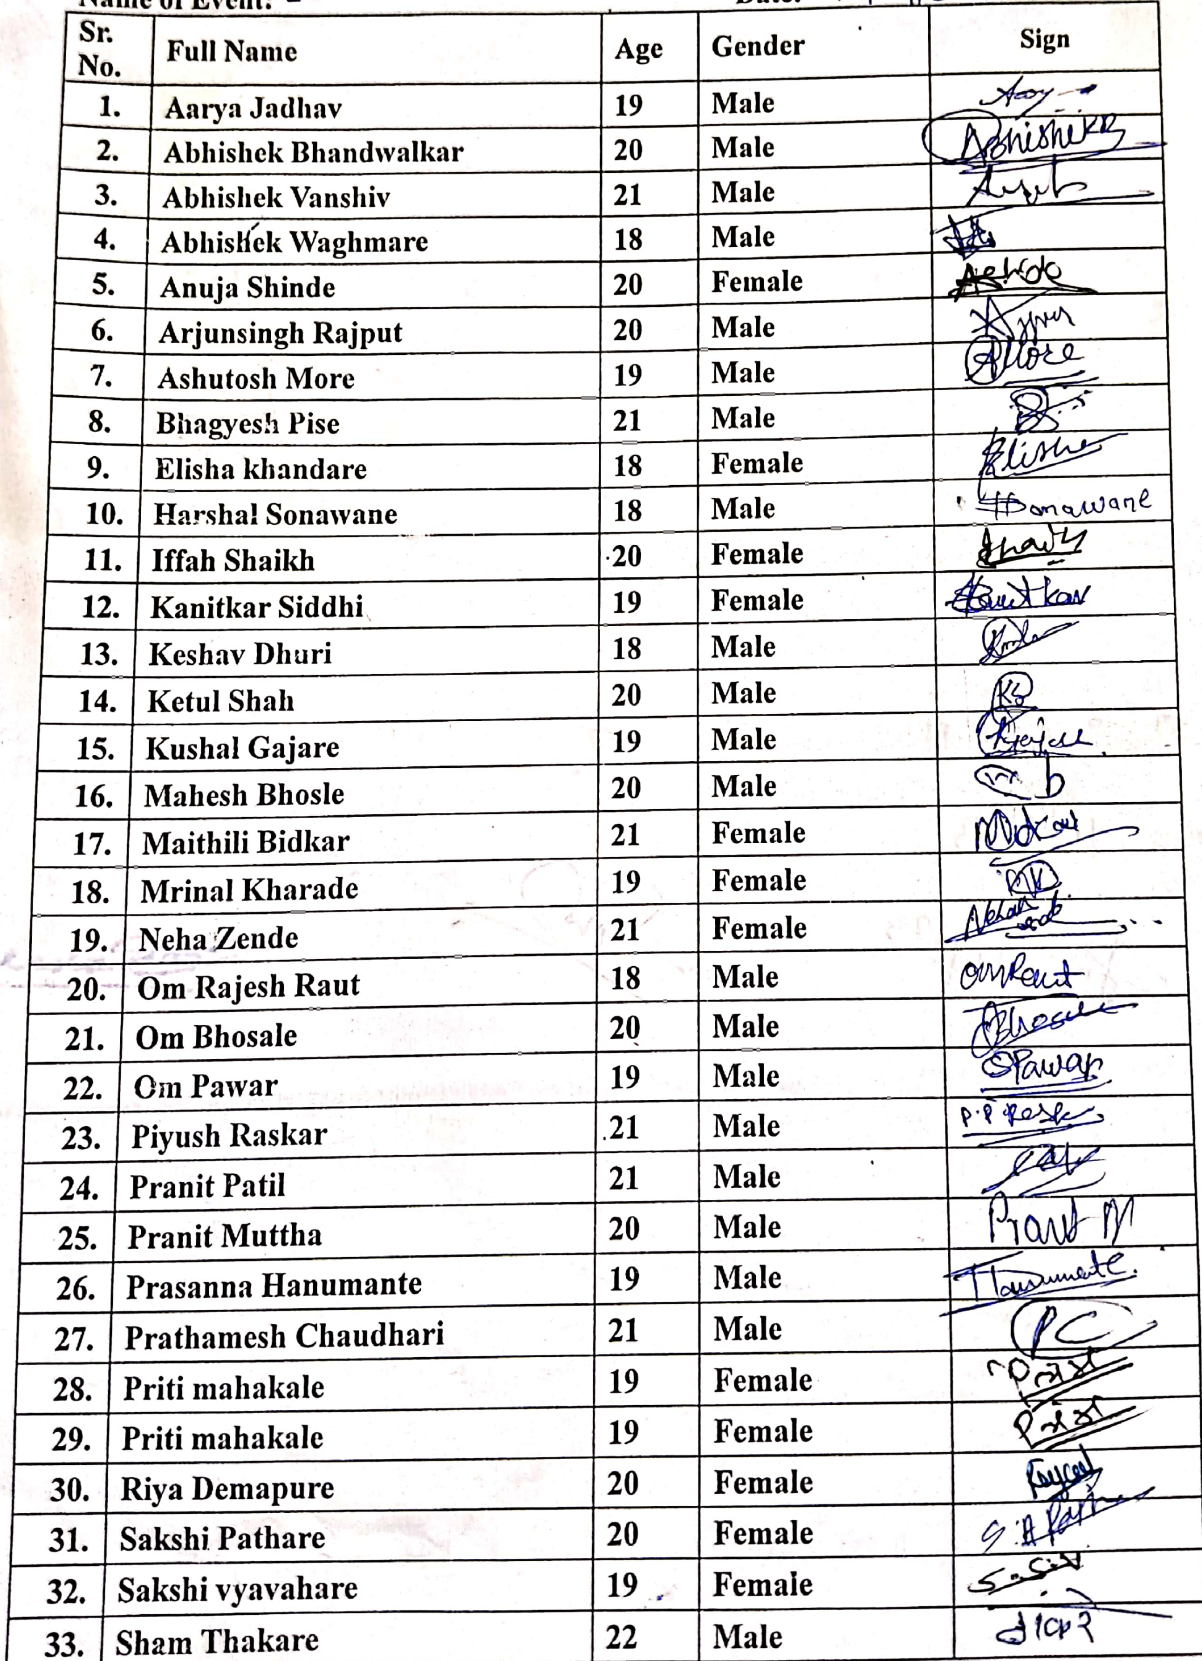 Name of Event: Date:
Sr. No. Full Name Age Gender Sign
1. Aarya Jadhav 19 Male
2. Abhishek Bhandwalkar 20 Male AbhishekB
3. Abhishek Vanshiv 21 Male
4. Abhishek Waghmare 18 Male
5. Anuja Shinde 20 Female
6. Arjunsingh Rajput 20 Male
7. Ashutosh More 19 Male AMore
8. Bhagyesh Pise 21 Male
9. Elisha khandare 18 Female Elisha
10. Harshal Sonawane 18 Male HSonawane
11. Iffah Shaikh 20 Female
12. Kanitkar Siddhi 19 Female
13. Keshav Dhuri 18 Male
14. Ketul Shah 20 Male KS
15. Kushal Gajare 19 Male
16. Mahesh Bhosle 20 Male
17. Maithili Bidkar 21 Female
18. Mrinal Kharade 19 Female MK
19. Neha Zende 21 Female
20. Om Rajesh Raut 18 Male OmRaut
21. Om Bhosale 20 Male
22. Om Pawar 19 Male OPawar
23. Piyush Raskar 21 Male
24. Pranit Patil 21 Male
25. Pranit Muttha 20 Male Pranit M
26. Prasanna Hanumante 19 Male Hanumante.
27. Prathamesh Chaudhari 21 Male PC
28. Priti mahakale 19 Female
29. Priti mahakale 19 Female
30. Riya Demapure 20 Female
31. Sakshi Pathare 20 Female
32. Sakshi vyavahare 19 Female
33. Sham Thakare 22 Male